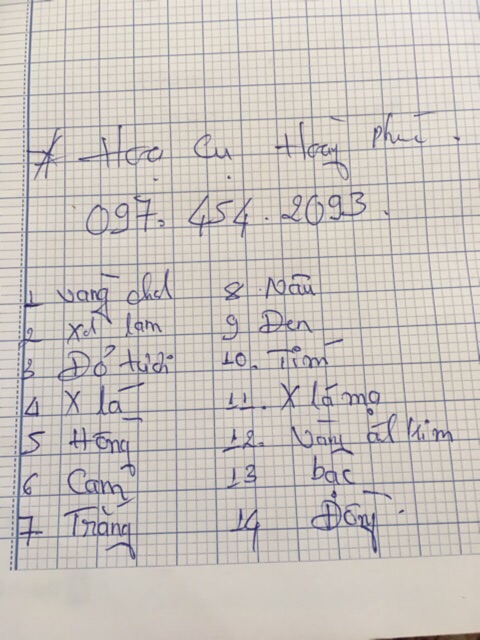 * Hoạ Cụ Hoàng Phúc.
097. 454. 2093.
1 vàng chd 8 Nâu
2 xd lam 9 Đen
3 Đỏ tươi 10. Tím
4 X lá 11. X lá mạ
5 Hồng 12. Vàng ảl kim
6 Cam 13 bạc
7 Trắng 14 Đồng.